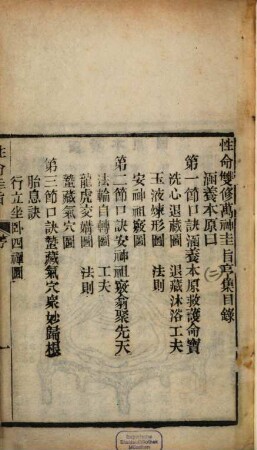 性命雙修萬神圭旨亨集目錄
涵養本原口
(二)
第一節口訣涵養本原救護命寶
洗心退藏圖　退藏沐浴工夫
玉液煉形圖　法則
安神祖竅圖
第二節口訣安神祖竅翕聚先天
法輪自轉圖　工夫
龍虎交媾圖　法則
蟄藏氣穴圖
第三節口訣蟄藏氣穴衆妙歸根
胎息訣
行立坐臥四禪圖
性命圭旨
Bayerische
Staatsbibliothek
München